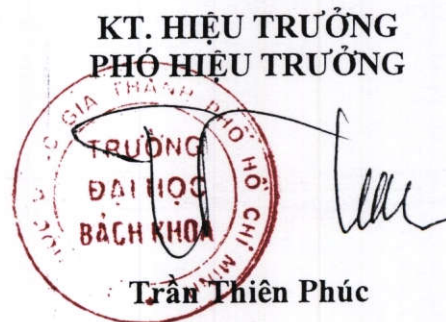 KT. HIỆU TRƯỞNG
PHÓ HIỆU TRƯỞNG
GIA THÀNH PHỐ HỒ CHÍ MINH
TRƯỜNG
ĐẠI HỌC
BÁCH KHOA
Trần Thiên Phúc